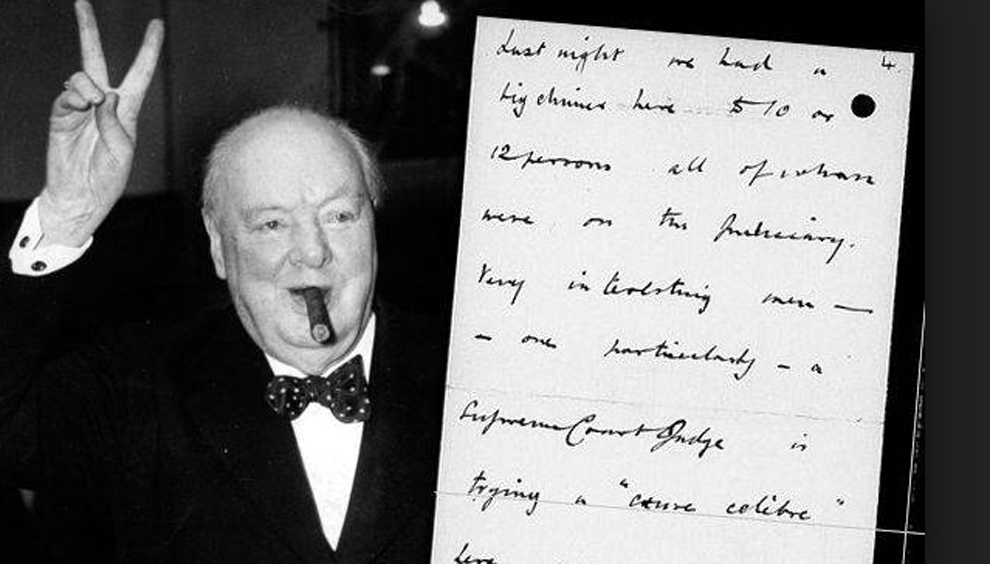 4.
Last night we had a
big dinner here to 10 or
12 persons all of whom
were on the Judiciary.
Very interesting men —
– one particularly – a
Supreme Court Judge is
trying a "cause celèbre"
here